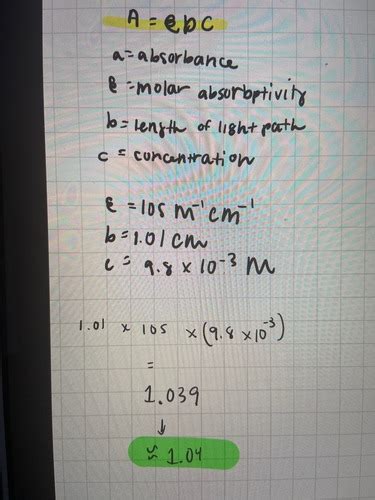 A = ebc
a = absorbance
e = molar absorbptivity
b = length of light path
c = concentration
e = 105 M⁻¹ cm⁻¹
b = 1.01 cm
c = 9.8 x 10⁻³ M
1.01 x 105 x (9.8 x 10⁻³)
=
1.039
↓
≈ 1.04